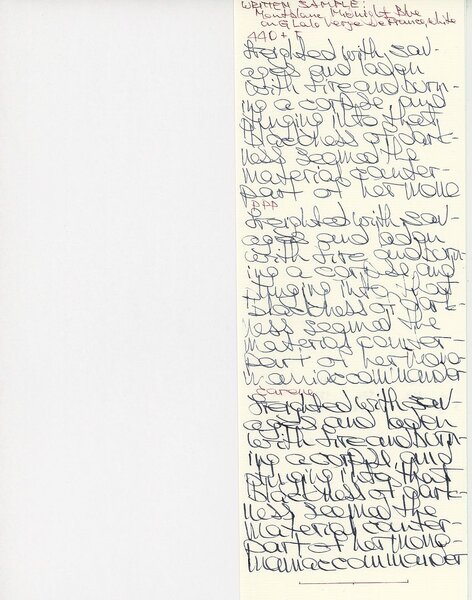 WRITTEN SAMPLE:
Montblanc Midnight Blue
on G. Lalo Verge de France, white
440 + F
freighted with sav-
ages and laden
with fire and burn-
ing a corpse, and
plunging into that
blackness of dark-
ness seemed the
material counter-
part of her mono
PPP
freighted with sav-
ages and laden
with fire and burn-
ing a corpse and
plunging into that
blackness of dark-
ness seemed the
material counter-
part of her mono-
maniac commander
freighted with sav-
ages and laden
with fire and burn-
ing a corpse, and
plunging into that
blackness of dark-
ness seemed the
material counter-
part of her mono-
maniac commander